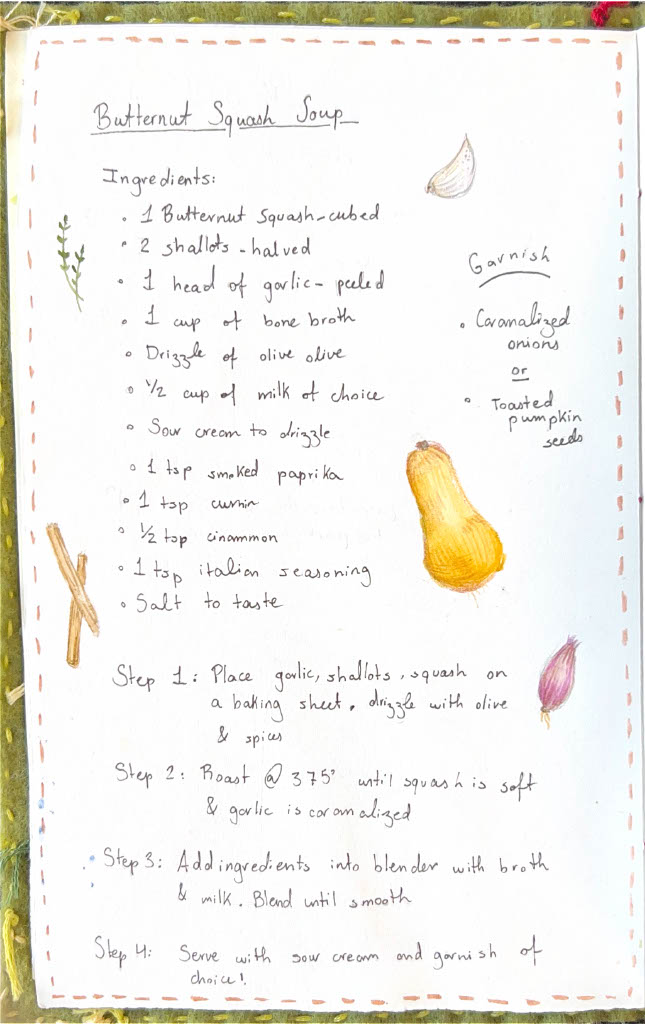 Butternut Squash Soup
Ingredients:
• 1 Butternut Squash-cubed
• 2 shallots - halved
• 1 head of garlic - peeled
• 1 cup of bone broth
• Drizzle of olive olive
• 1/2 cup of milk of choice
• Sour cream to drizzle
• 1 tsp smoked paprika
• 1 tsp cumin
• 1/2 tsp cinammon
• 1 tsp italian seasoning
• Salt to taste
Garnish
• Caramalized
onions
or
• Toasted
pumpkin
seeds
Step 1: Place garlic, shallots, squash on
a baking sheet, drizzle with olive
& spices
Step 2: Roast @ 375° until squash is soft
& garlic is caramalized
Step 3: Add ingredients into blender with broth
& milk. Blend until smooth
Step 4: Serve with sour cream and garnish of
choice!